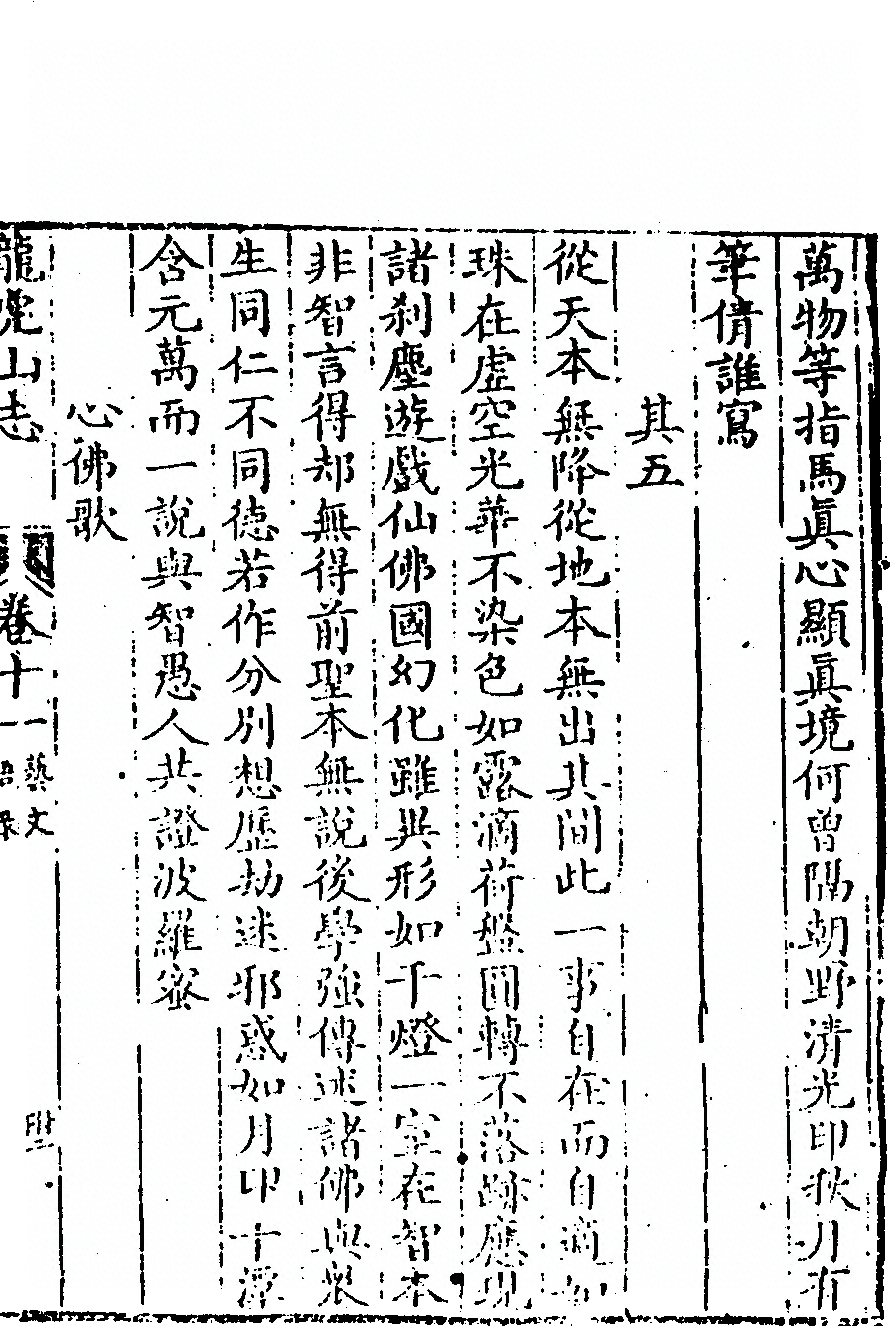 萬物等指馬眞心顯眞境何曾隔朝野清光印秋月有
筆倩誰寫
其五
從天本無降從地本無出其間此一事自在而自適如
珠在虛空光華不染色如露滴荷盤圓轉不落跡應現
諸刹塵遊戲仙佛國幻化雖異形如千燈一室在智本
非智言得却無得前聖本無說後學強傳述諸佛與衆
生同仁不同德若作分別想歷劫迷邪惑如月印千潭
含元萬而一說與智愚人共證波羅蜜
心佛歌
龍虎山志
卷十一
藝文
語錄